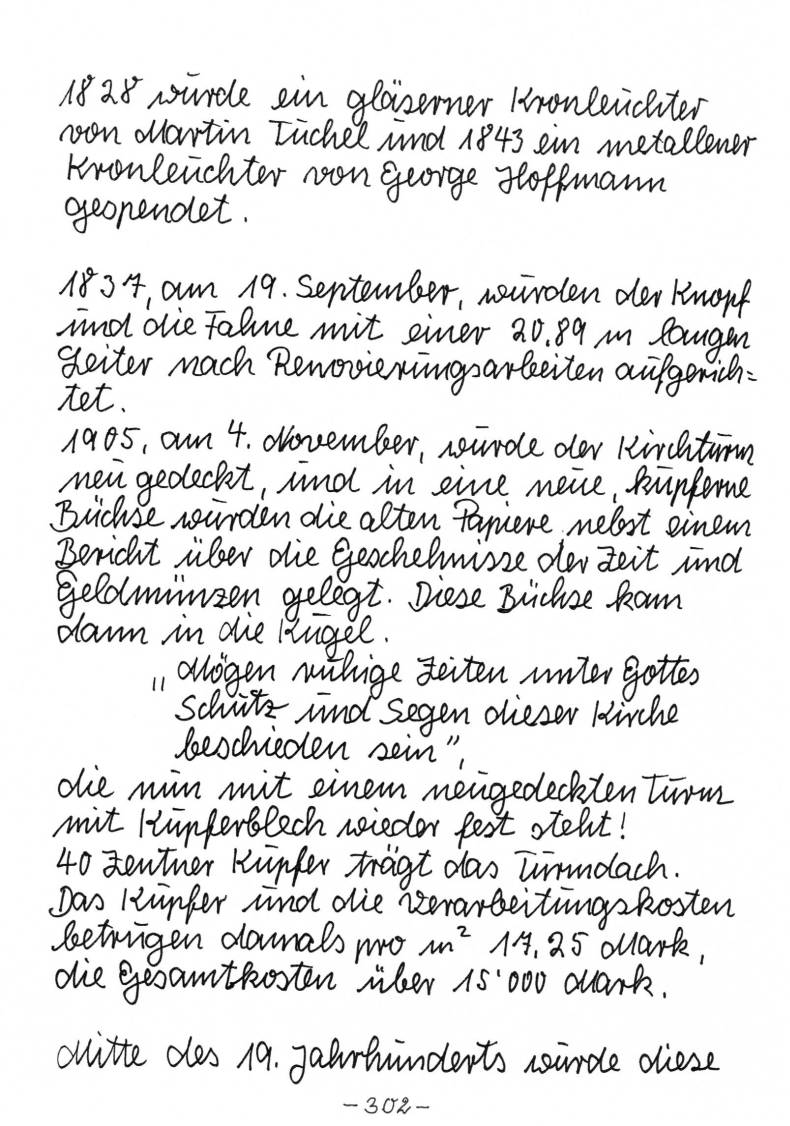 1828 wurde ein gläserner Kronleuchter
von Martin Tuchel und 1843 ein metallener
Kronleuchter von George Hoffmann
gespendet.
1837, am 19. September, wurden der Knopf
und die Fahne mit einer 20.89 m langen
Leiter nach Renovierungsarbeiten aufgerich=
tet.
1905, am 4. November, wurde der Kirchturm
neu gedeckt, und in eine neue, kupferne
Büchse wurden die alten Papiere nebst einem
Bericht über die Geschehnisse der Zeit und
Geldmünzen gelegt. Diese Büchse kam
dann in die Kugel.
„Mögen ruhige Zeiten unter Gottes
Schutz und Segen dieser Kirche
beschieden sein",
die nun mit einem neugedeckten Turm
mit Kupferblech wieder fest steht!
40 Zentner Kupfer trägt das Turmdach.
Das Kupfer und die Verarbeitungskosten
betrugen damals pro m² 17,25 Mark,
die Gesamtkosten über 15'000 Mark.
Mitte des 19. Jahrhunderts wurde diese
-302-